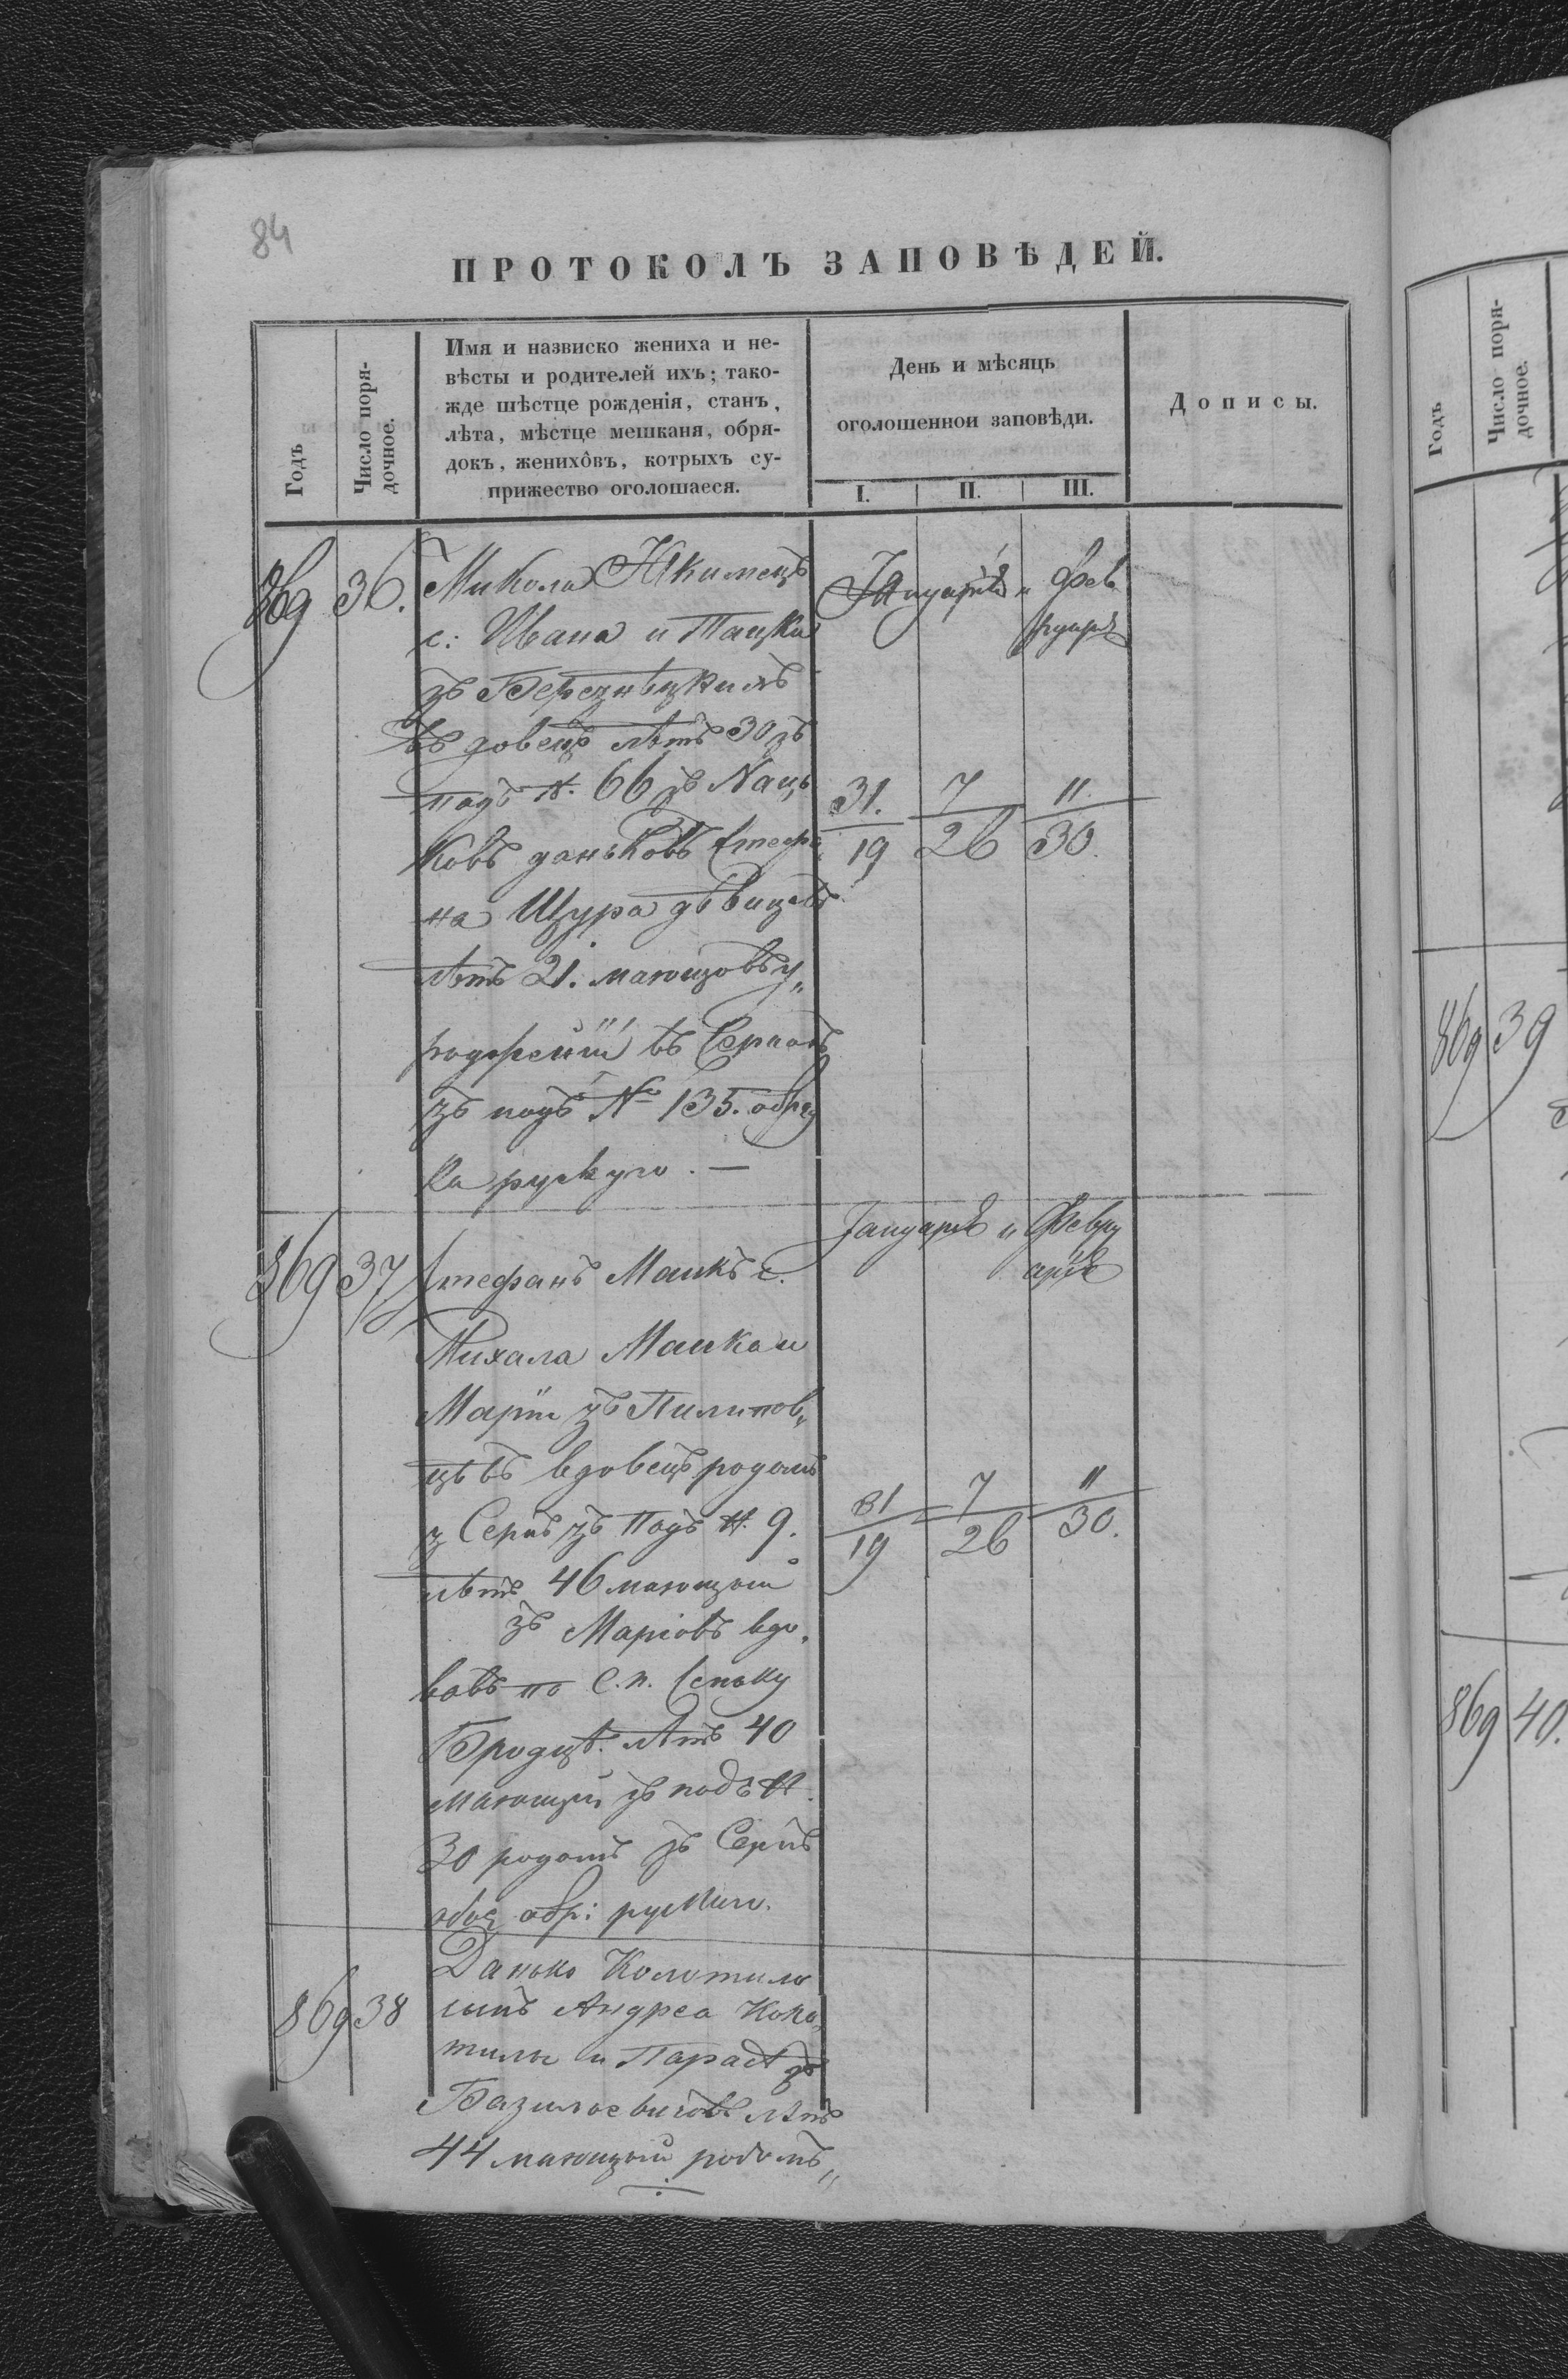 84
ПРОТОКОЛЪ ЗАПОВѢДЕЙ.
Годъ
Число поря-
дочное.
Имя и назвиско жениха и не-
вѣсты и родителей ихъ; тако-
жде мѣстце рожденія, станъ,
лѣта, мѣстце мешканя, обря-
докъ, женихôвъ, котрыхъ су-
прижество оголошаеся.
День и мѣсяць
оголошеннои заповѣди.
I. II. III.
Дописы.
869 36. Микола Якимецъ
с: Ивана и
зъ
вдовецъ лѣтъ 30 зъ
подъ N. 66 зъ
ковъ даньковъ Стефа
на Щура дѣвицевъ
лѣтъ 21. мающовъ у„
родженій въ
зъ подъ No 135. обряд
ка руского. —
Януарія и Фев
руарѣ
31. 7 11
19 26 30.
869 37 Стефанъ Маикъ с.
Михала Маика и
Маріи зъ Пилипов„
цѣвъ вдовецъ родомъ
з зъ Подъ N. 9.
лѣтъ 46 мающый
зъ Маріовъ вдо„
вовъ по С.п. Сеньку
лѣтъ 40
мающій зъ подъ N.
30 родомъ зъ
обое обр: руского.
Януарѣ и Февру
арѣ
31 7 11
19 26 30.
869 38 Данько Колотило
сынъ Андрея Коло„
тилы и зъ
Базилевичовъ лѣтъ
44 мающый родомъ„
Годъ
Число поря-
дочное.
869 39
869 40.